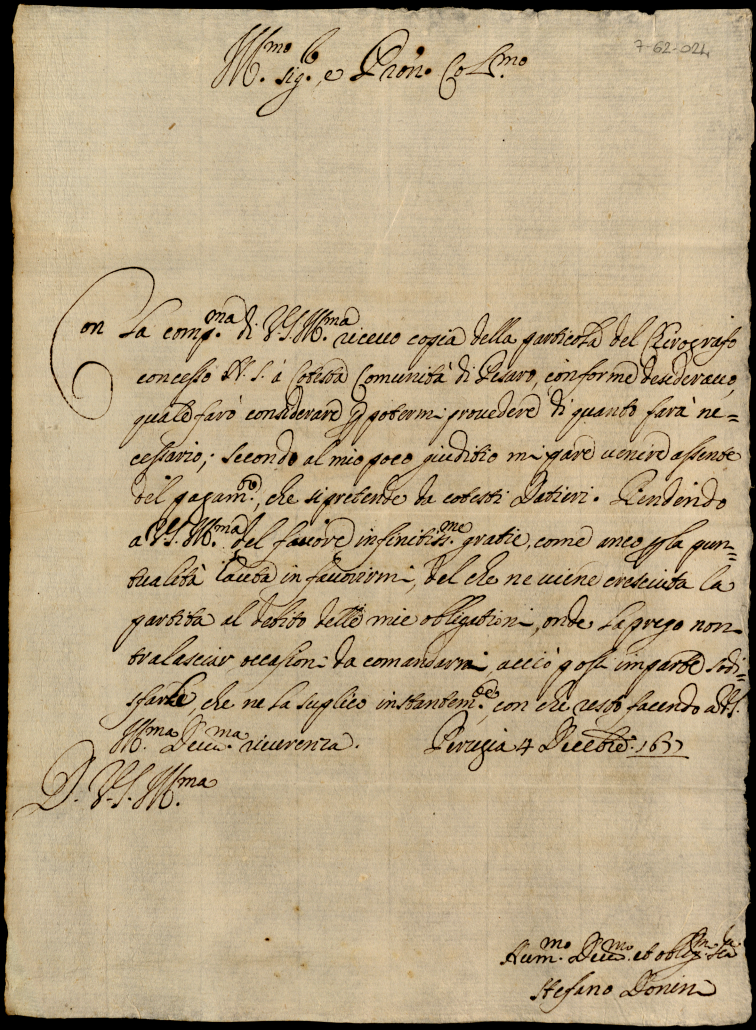 7-62-024
Ill.mo Sig.re, e Pron. Col.mo
Con la comp.ma di V.S. Ill.ma riceuo copia della particola del Chirografo
concesso N.S. à cotesta Comunità di Pesaro, conforme desiderauo,
quale farò considerare p potermi prouedere di quanto sarà ne=
cessario; secondo al mio poco giuditio mi pare uenire assente
del pagam.to, che si pretende da cotesti Datieri. Rendendo
a V.S. Ill.ma del fauore infinitiss.me gratie, come anco p la pun=
tualità hauta in fauorirmi, del che ne uiene cresciuta la
partita al debito delle mie obbligationi, onde la prego non
tralasciar occasioni da comandarmi, acciò possi in parte sodi=
sfarle, che ne la suplico instantem.te, con che resto facendo a V.S.
Ill.ma Deuu.ma riuerenza. Perugia 4 Decebre. 1677
D. V.S. Ill.ma
Hum.mo Deuu.mo et oblig.mo
Stefano Donini